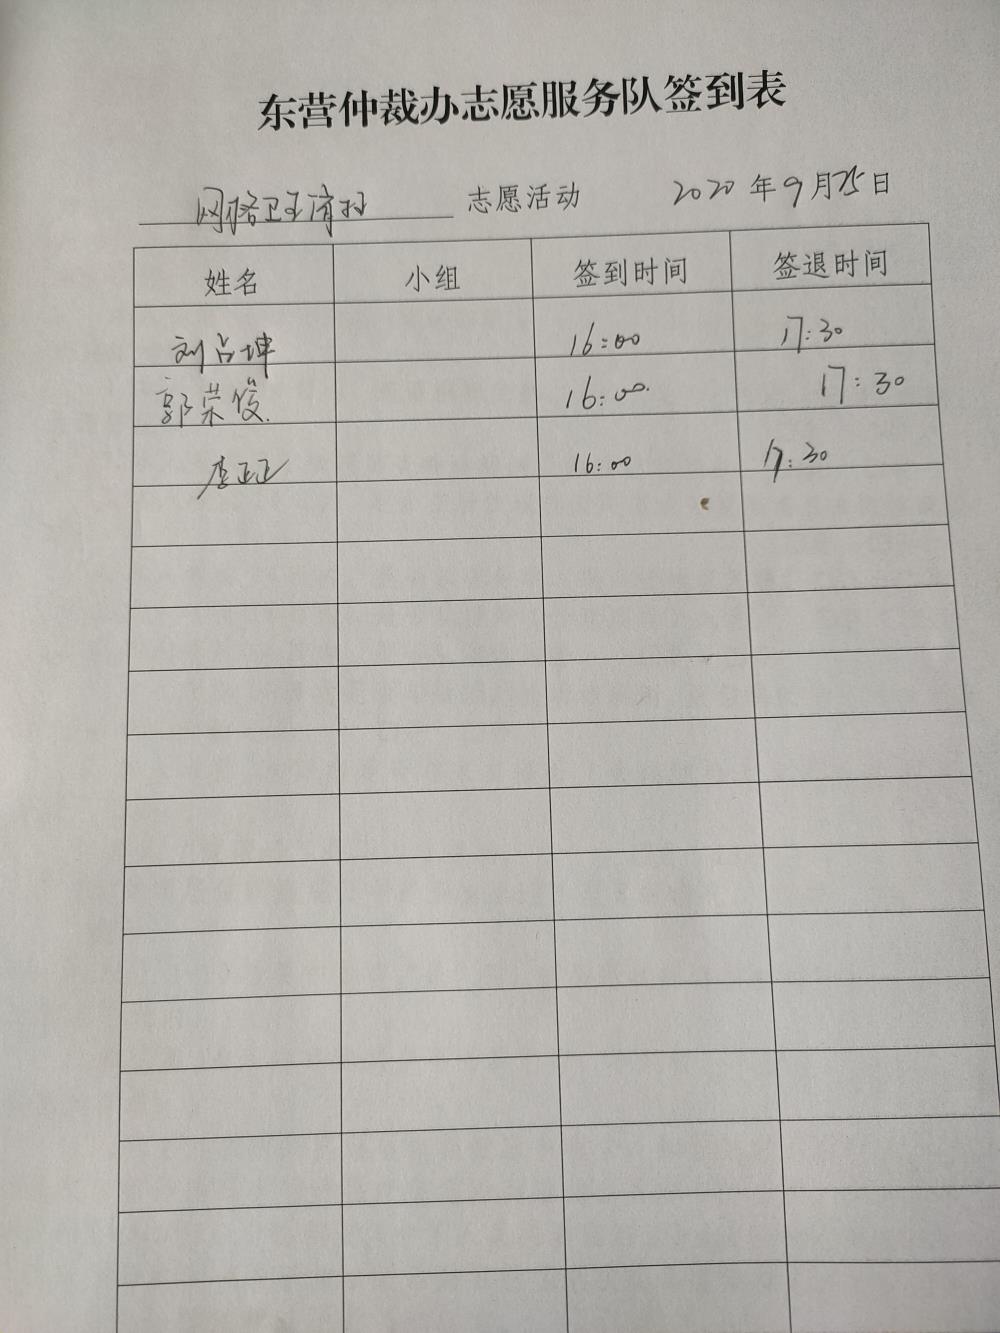 东营仲裁办志愿服务队签到表
网格卫生清扫 志愿活动 2020年9月25日
姓名 小组 签到时间 签退时间
刘占坤 16:00 17:30
郭荣俊 16:00 17:30
李正正 16:00 17:30